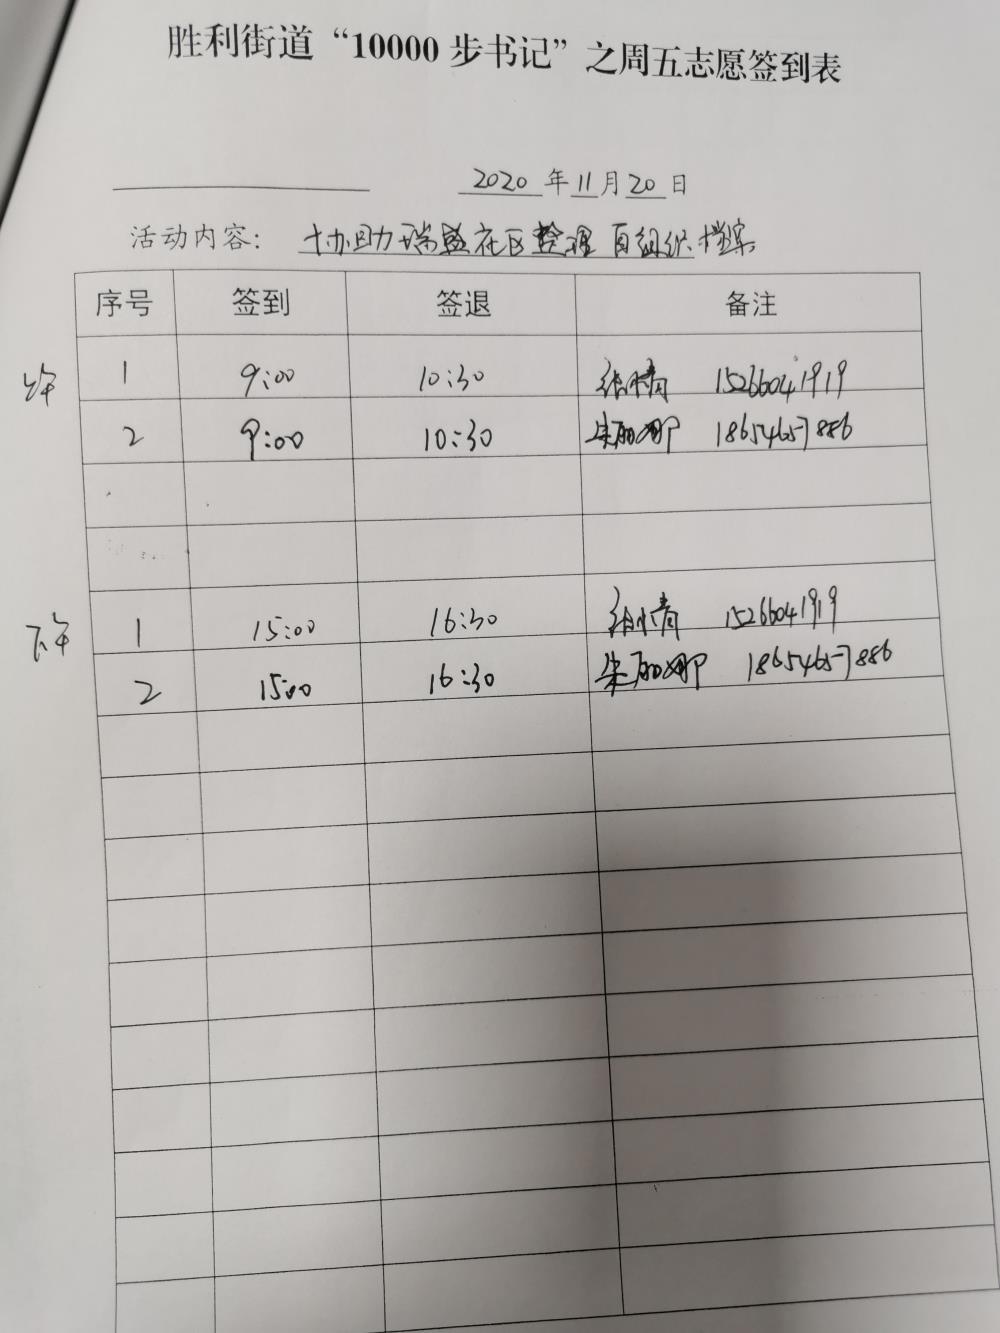 胜利街道“10000 步书记”之周五志愿签到表
2020 年 11 月 20 日
活动内容： 协助瑞益社区整理百组织档案
序号 签到 签退 备注
上午 1 9:00 10:30 张倩 15266041919
2 9:00 10:30 朱丽娜 18654657886
下午 1 15:00 16:30 张倩 15266041919
2 15:00 16:30 朱丽娜 18654657886